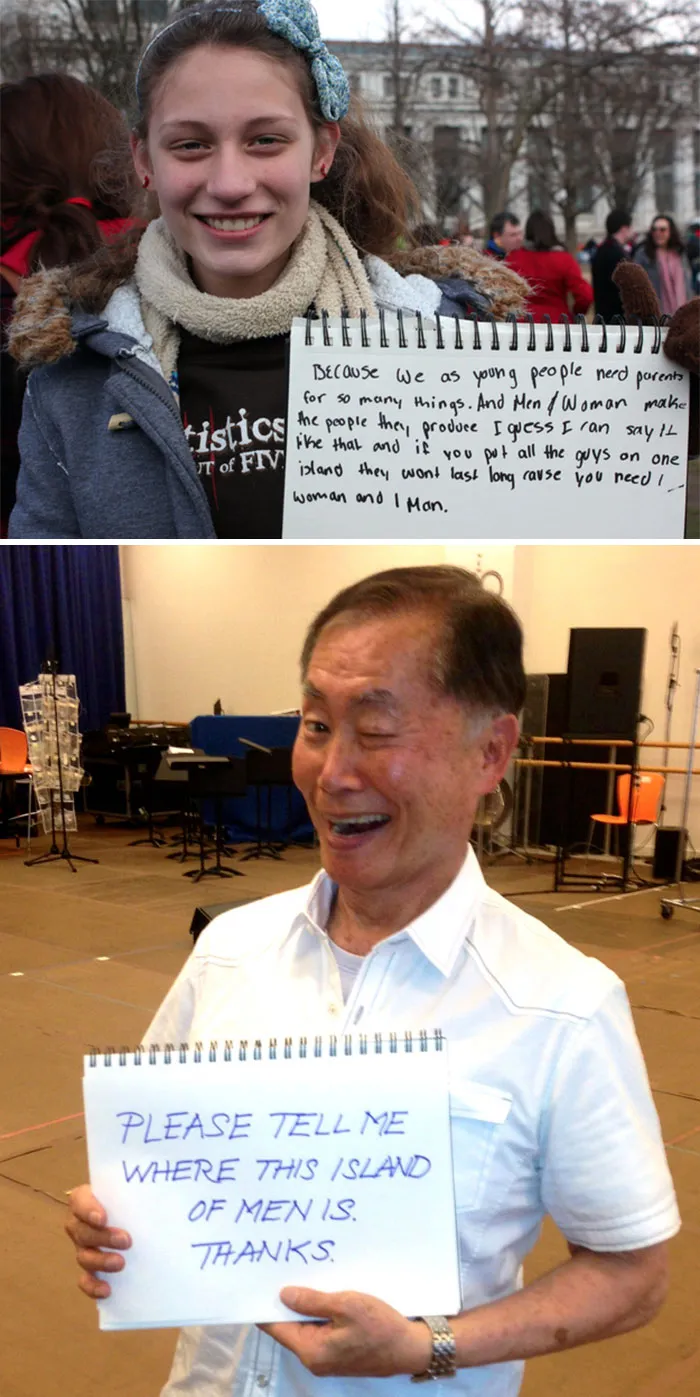 BECAUSE We as young people need parents
for so many things. And Men / Woman make
the people they produce I guess I can say it
like that and if you put all the guys on one
island they wont last long cause you need 1
woman and 1 Man.
tistics
UT of FIV
PLEASE TELL ME
WHERE THIS ISLAND
OF MEN IS.
THANKS.